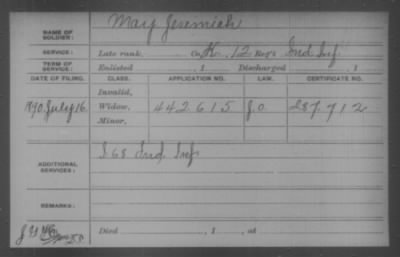 NAME OF SOLDIER: May Jeremiah
SERVICE: Late rank, Co. K, 12 Reg't Ind Inf
TERM OF SERVICE: Enlisted , 1 Discharged , 1
DATE OF FILING. CLASS. APPLICATION NO. LAW. CERTIFICATE NO.
Invalid,
1890 July 16 Widow, 442615 J.O. 287.712
Minor,
ADDITIONAL SERVICES: I 68 Ind Inf
REMARKS:
Died , 1 , at